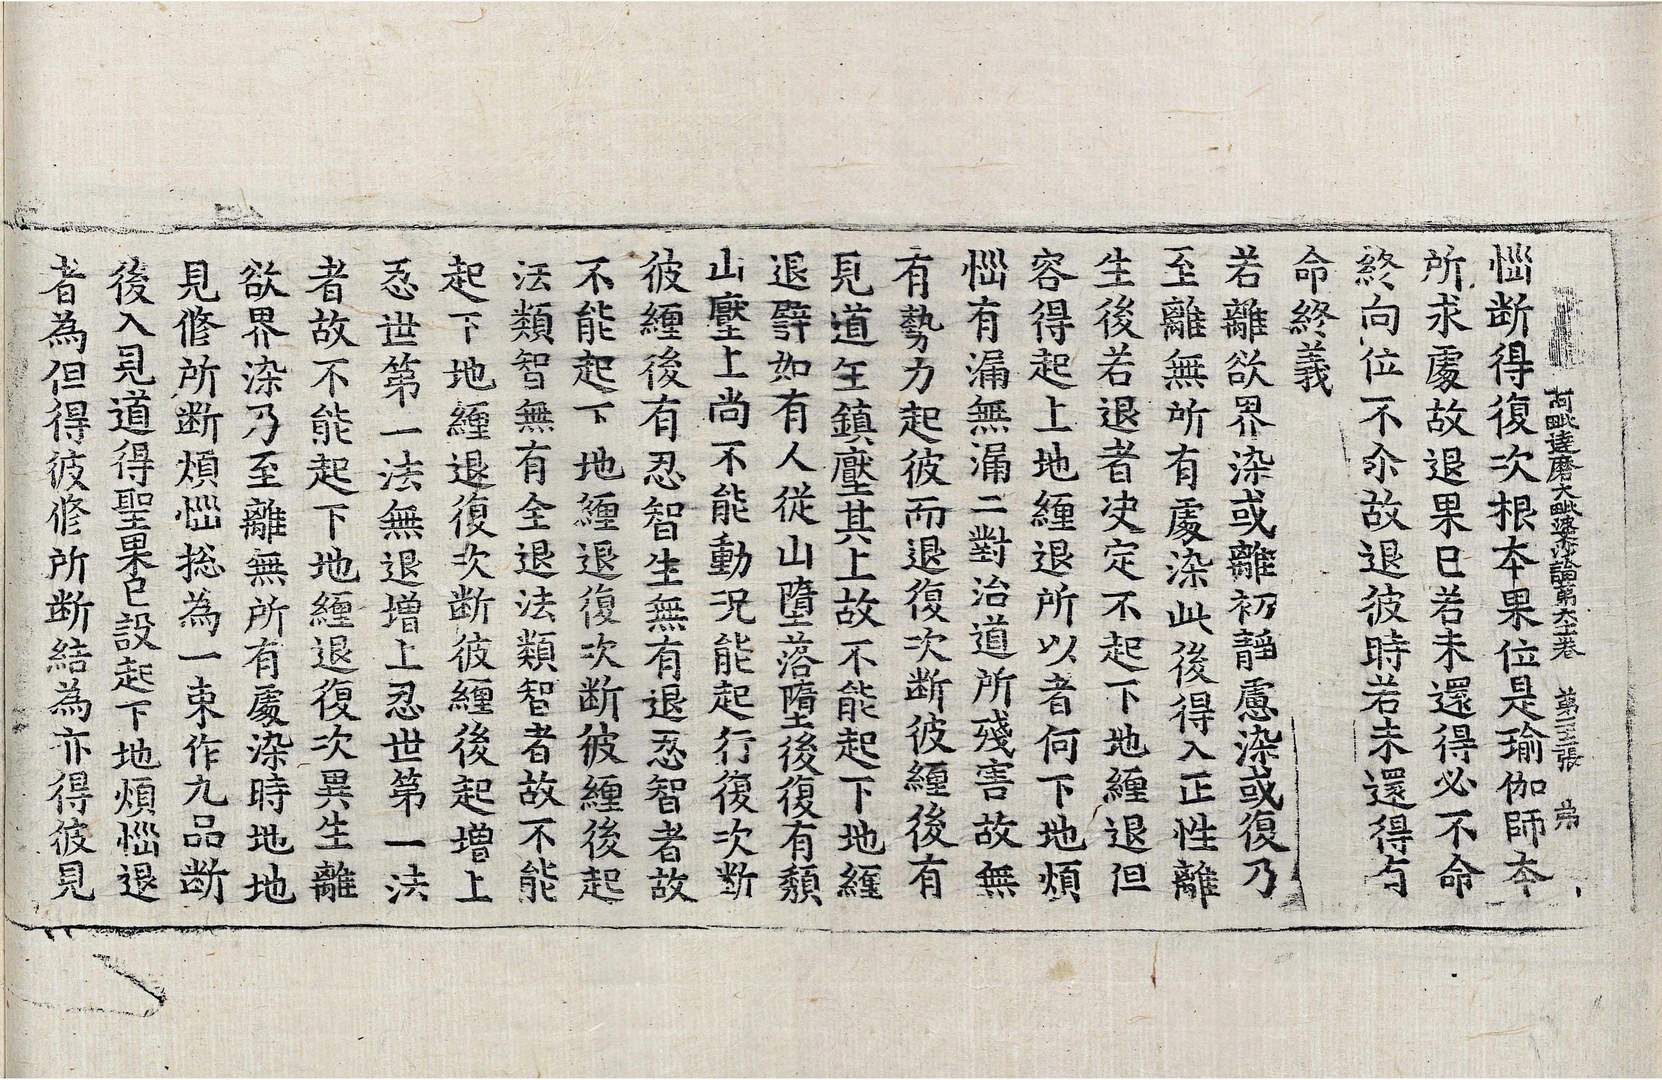 阿毗達磨大毗婆沙論第六十一卷 第三張 弟
惱断得復次根本果位是瑜伽師夲
所求處故退果已若未還得必不命
終向位不尒故退彼時若未還得有
命終義
若離欲界染或離初靜慮染或復乃
至離無所有處染此後得入正性離
生後若退者决定不起下地纏退但
容得起上地纏退所以者何下地煩
惱有漏無漏二對治道所殘害故無
有勢力起彼而退復次断彼纏後有
見道生鎮壓其上故不能起下地纏
退譬如有人從山墮落墮後復有頹
山壓上尚不能動况能起行復次断
彼纏後有忍智生無有退忍智者故
不能起下地纏退復次断彼纏後起
法類智無有全退法類智者故不能
起下地纏退復次断彼纏後起增上
忍世第一法無退增上忍世第一法
者故不能起下地纏退復次異生離
欲界染乃至離無所有處染時地地
見修所断煩惱捴為一束作九品断
後入見道得聖果已設起下地煩惱退
者為但得彼修所断結為亦得彼見